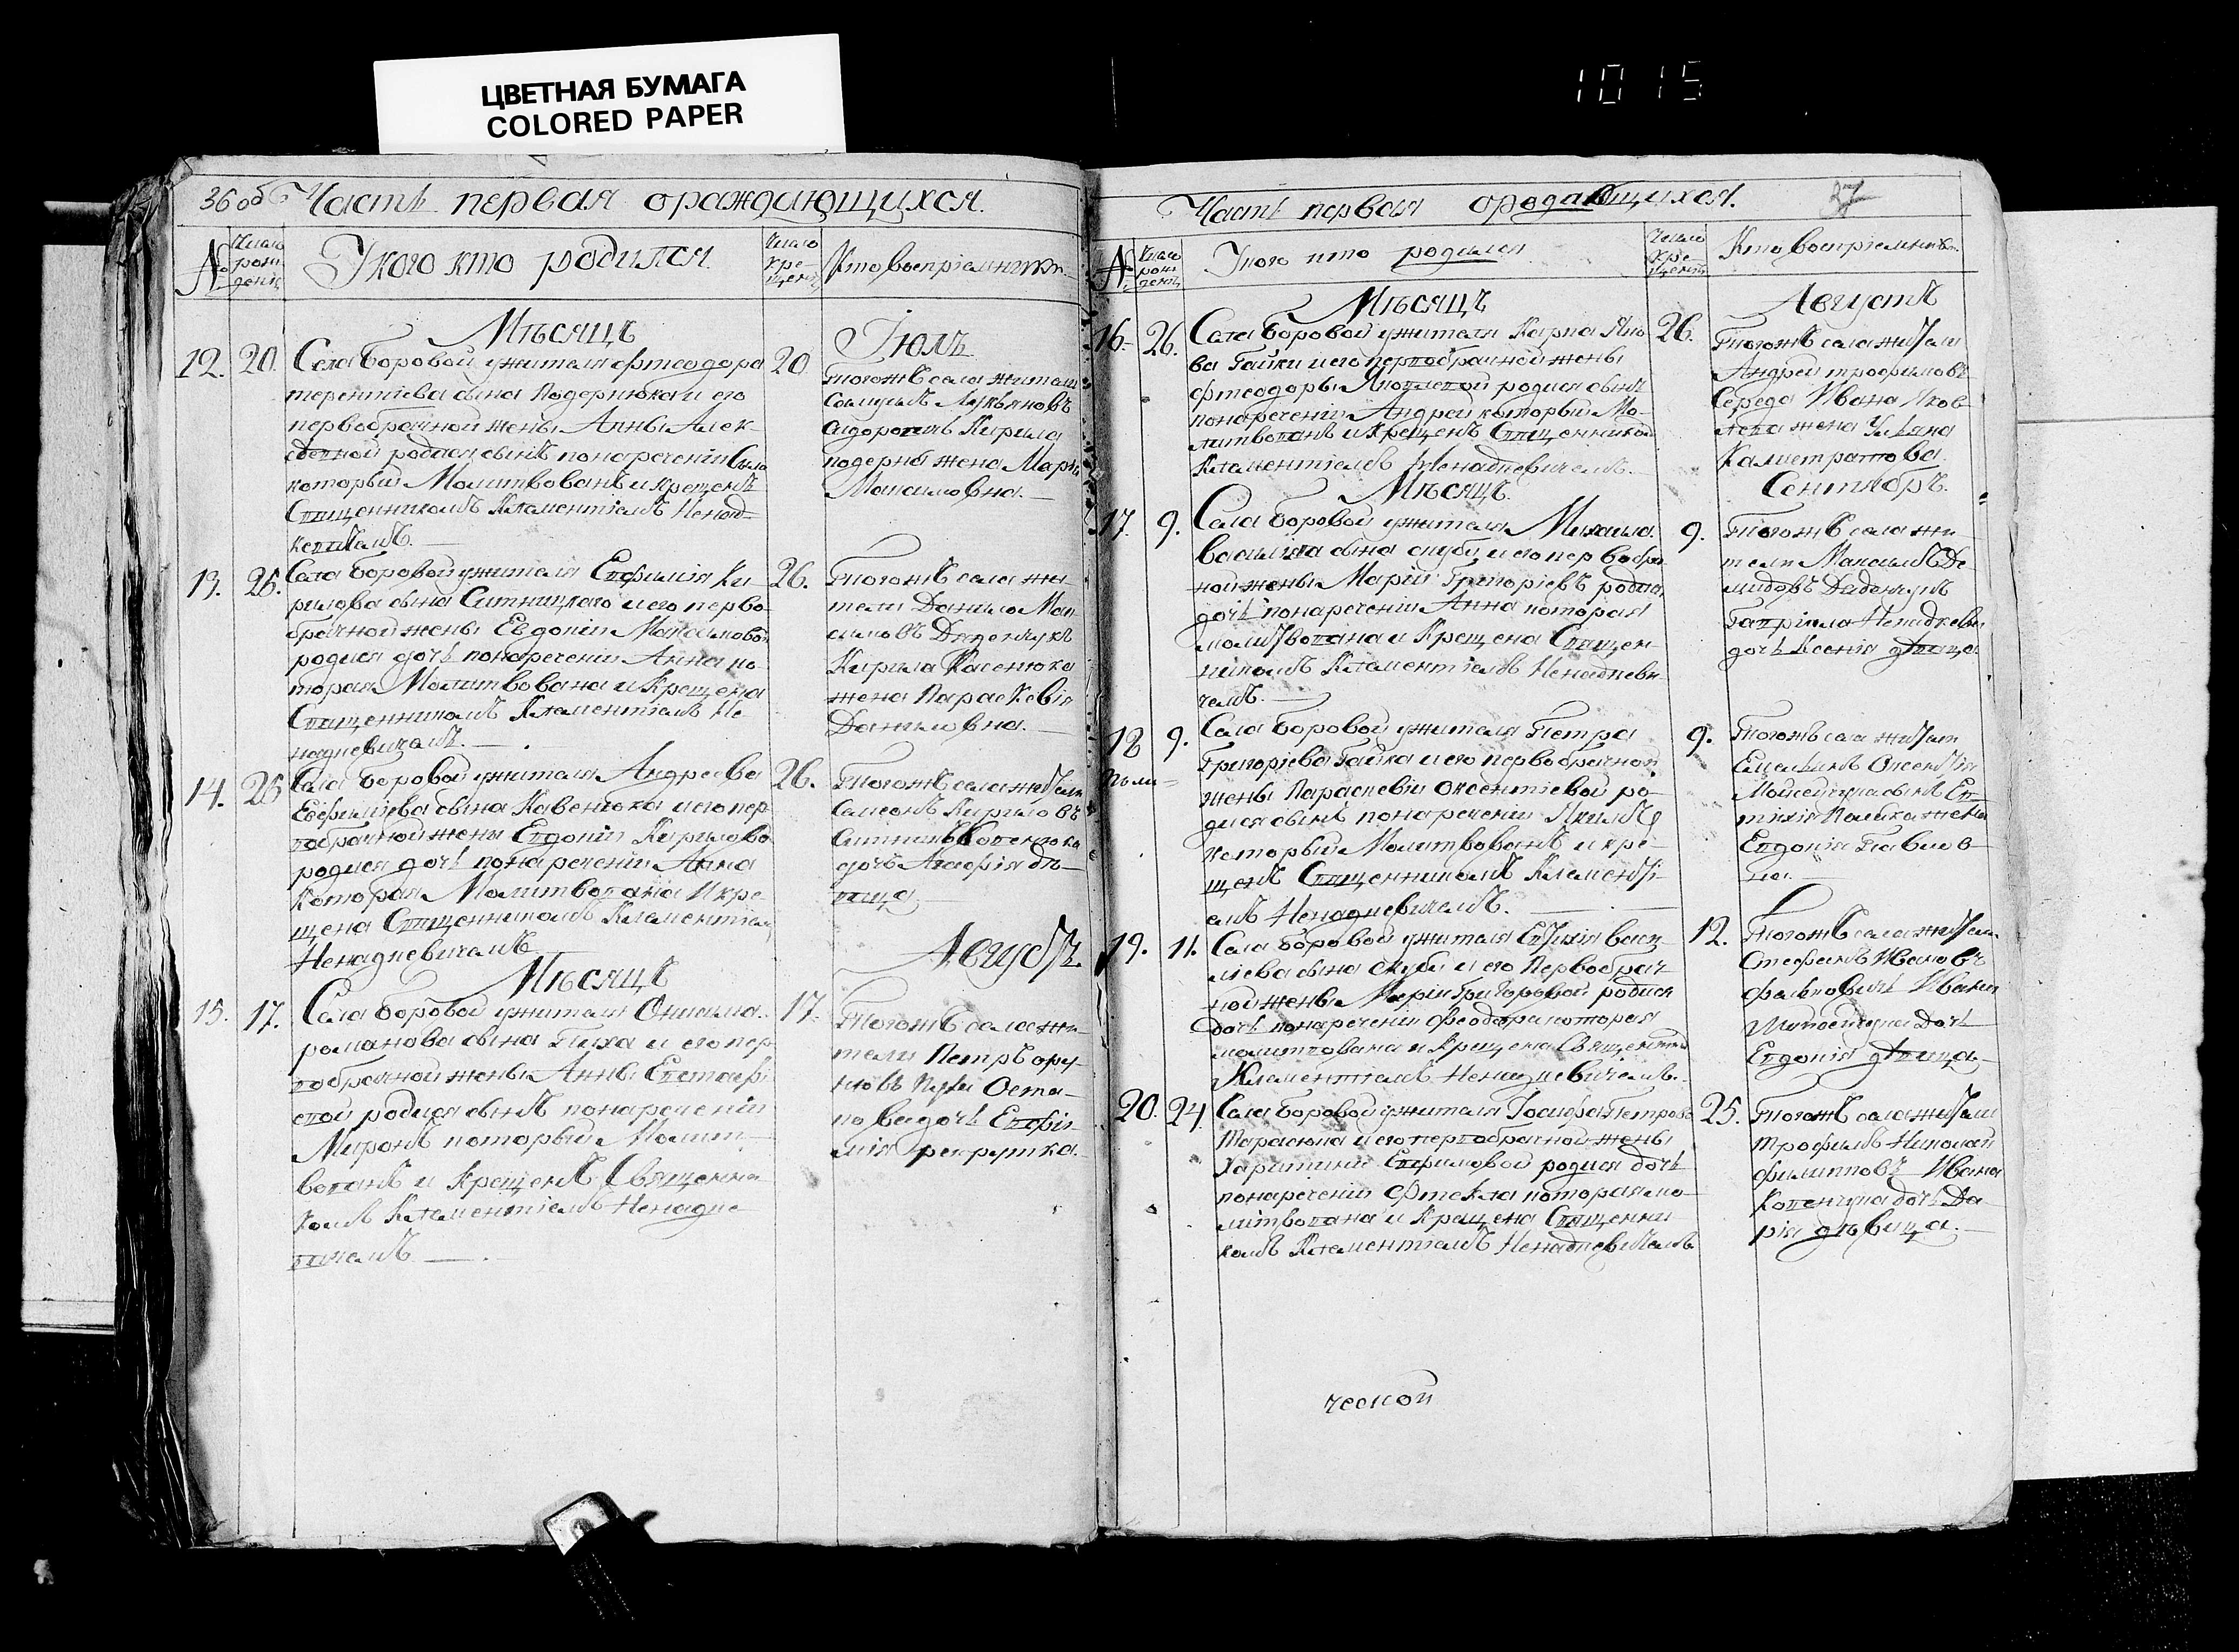 ЦВЕТНАЯ БУМАГА
COLORED PAPER
1015
36 об Часть первая ораждающихся.
№ Число рожденія У кого кто родился. Число крещенія Кто воспріемники.
Мѣсяцъ Іюль
12. 20. Села Боровой ужителя Фтеодора 20
терентіева сына Подернюка и его
первобрачной жены Анны Алек-
родился сынъ понареченіи
который Молитвованъ и крещенъ
Священникомъ Клементіемъ Ненад-
тогожъ села жители
Самуилъ Лукьяновъ
Кирила
жена Марія
Максимовна.
13. 25. Села Боровой ужителя Евфимія Ки- 26.
рилова сына Ситницкого и его перво-
брачной жены Евдокіи Максимовой
родися дочь понареченіи Анна ко-
торая Молитвована и Крещена
Священникомъ Клементіемъ Не
надкевичемъ.
Тогожъ села жи-
тели Данило Мак-
симовъ
Кирила Касенюка
жена Параскевія
Даниловна.
14. 25 Села Боровой ужителя Андреева 26.
Евфиміева сына Кавенюка и его пер
вобрачной жены Евдокіи Кирилово
родися дочь понареченіи Анна
Которая Молитвована И кре
щена Священникомъ Клементіем
Ненадкевичемъ
Тогожъ села жители
Самсонъ Кириловъ
дочь Агафія дѣ-
вица
Мѣсяцъ Августъ.
15. 17. Села Боровой ужителя Онисима 17.
романова сына Пиха и его пер
вобрачной жены Анны Евстафі
евой родися сынъ понареченіи
Миронъ который Молит-
вованъ и Крещенъ Священни
комъ Клементіемъ Ненадке
вичемъ
Тогожъ села жи-
тели Петръ
Оста-
дочь Евфи-
мія рекрутка.
Часть первая ораждающихся. 37
№ Число рожденія У кого кто родился Число крещенія Кто воспріемники.
Мѣсяцъ Августъ
16. 26. Села Боровой ужителя Карпа Яко 26.
ва Гайки и его первобрачной жены
Фтеодоры Яковлевой родися сынъ
понареченіи Андрей который Мо-
литвованъ и Крещенъ Священником
Клементіемъ Ненадкевичемъ.
Тогожъ села жители
Андрей трофимовъ
Середа Ивана Яков
лева жена Уліяна
Калистратова
Мѣсяцъ. Сентябрь.
17. 9. Села Боровой ужителя Михаила 9.
василіева сына скубы и его первобра
ной жены Маріи Григоріевъ родися
дочь понареченіи Анна которая
молитвована и Крещена Священ-
никомъ Клементіемъ Ненадкеви
чемъ.
Тогожъ села жи
тели Максимъ Де
мидовъ
Гавріила Ненадкеви
дочь Ксенія дѣвица
18 9. Села Боровой ужителя Петра 9.
Григоріева Гайка и его первобрачной
жены Параскевіи Оксентіевой ро-
дися сынъ понареченіи Якимъ
который Молитвованъ и кре-
щенъ Священникомъ Клементі-
емъ Ненадкевичемъ.
Тогожъ села жители
Емельянъ Оксентія
Мойсейчука сынъ Ев
тихія жена
Евдокія Павлов
на.
19. 11. Села Боровой ужителя Евтихія васи 12.
ліева сына скубы и его Первобрач
ной жены Маріи Григоровой родися
дочь понареченіи Феодора которая
молитвована и Крещена Священник
Клементіемъ Ненадкевичемъ.
Тогожъ села жители
Стефанъ Ивановъ
Ивана
Дочь
Евдокія дѣвица
20. 24. Села Боровой ужителя Іосифа Петрова 25.
Тарасюка и его первобрачной жены
Харитини Ефимовой родися дочь
понареченіи Фтекла которая мо-
литвована и Крещена Священни
комъ Клементіемъ Ненадкевичемъ
Тогожъ села жители
Трофимъ Николай
Филиповъ Ивана
дочь Да-
рія дѣвица.
ческой